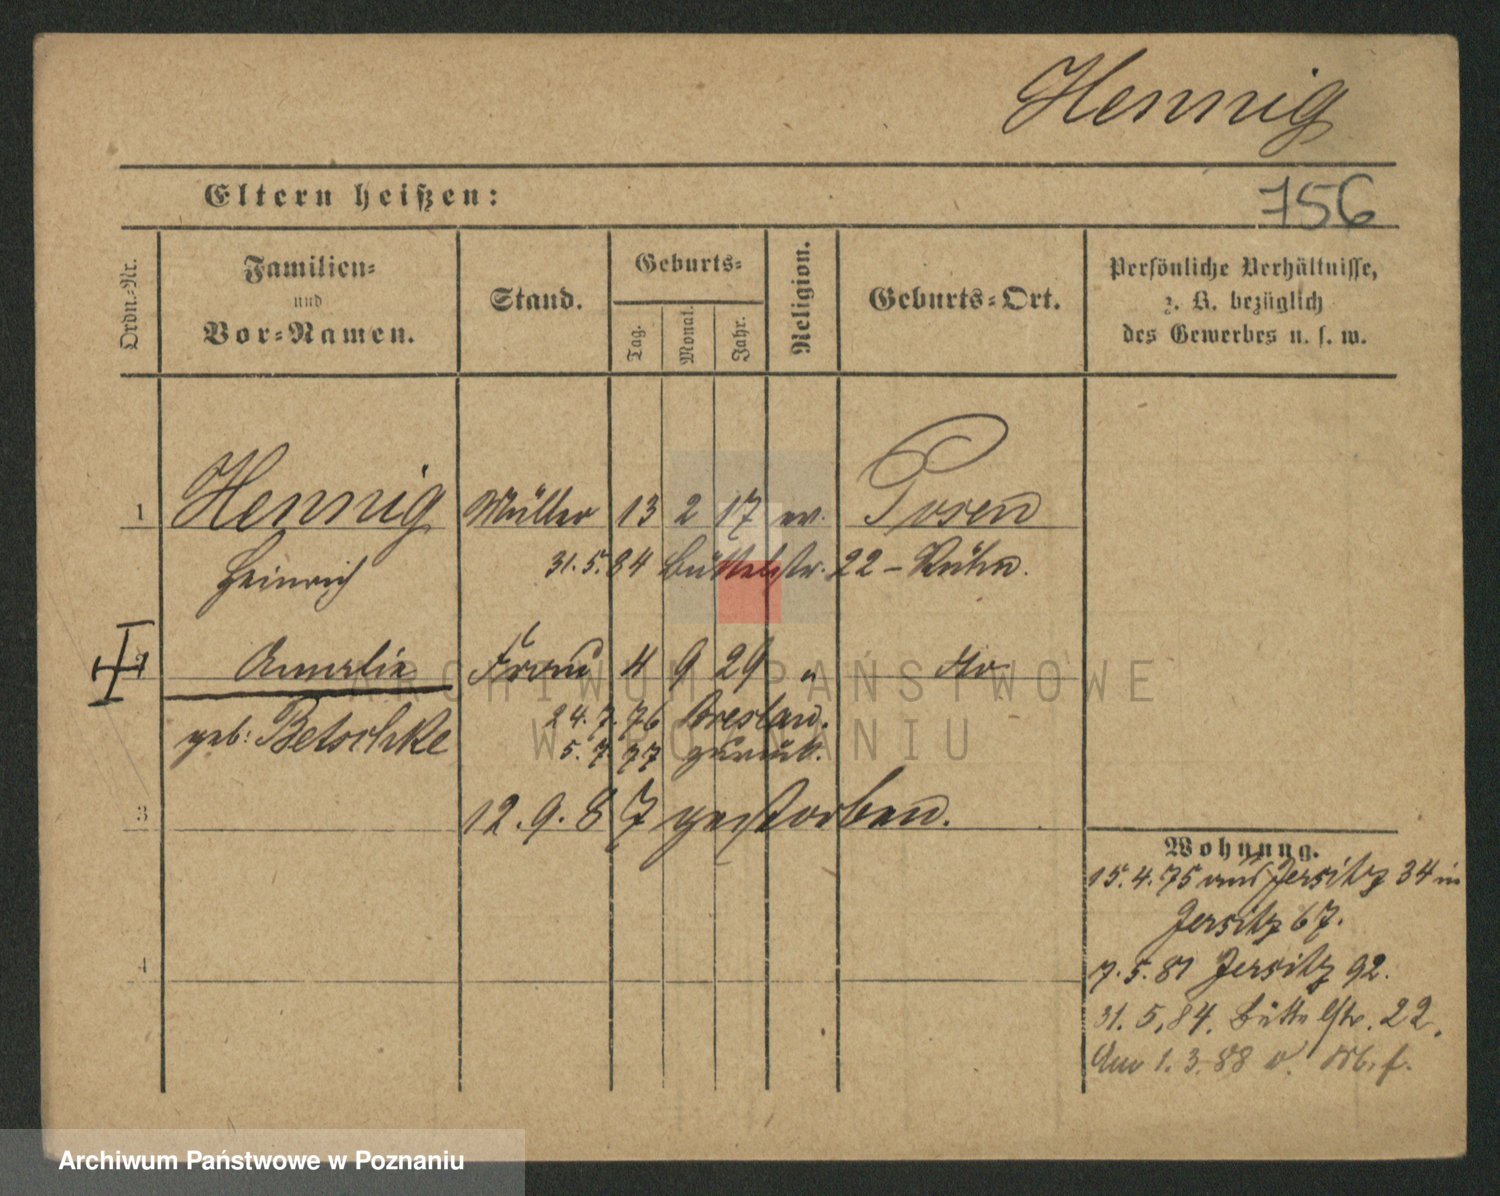 Hennig
Eltern heißen:
756
Ordn.-Nr.
Familien-
und
Vor-Namen.
Stand.
Geburts-
Tag.
Monat.
Jahr.
Religion.
Geburts-Ort.
Persönliche Verhältnisse,
z. B. bezüglich
des Gewerbes u. s. w.
1 Hennig Müller 13 2 17 ev. Posen
Heinrich 31.5.84 Büttelstr. 22 –
Amalie Frau 4 9 29 " do
geb: Betschke 24.7.76 Breslau.
5.7.77 zurück.
3 12.9.87 gestorben.
Wohnung.
15.4.75 aus Jersitz 34 in
Jersitz 67.
4 7.5.81 Jersitz 92.
31.5.84. Büttelstr. 22.
1.3.88
ARCHIWUM PAŃSTWOWE
W POZNANIU
Archiwum Państwowe w Poznaniu